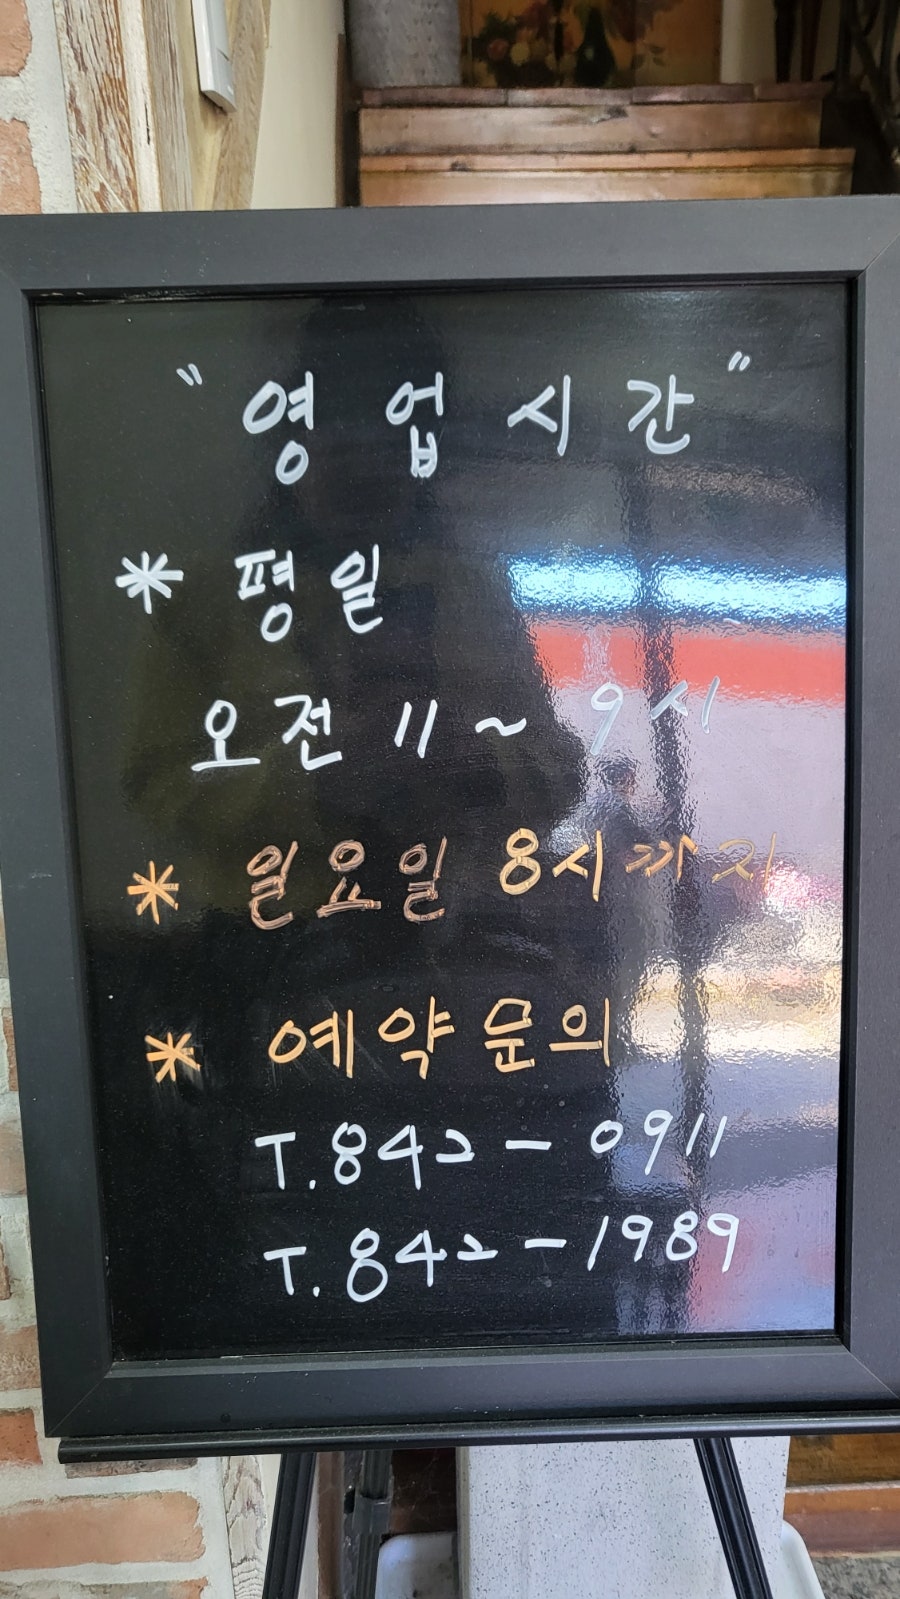 " 영업시간 "
* 평일
오전 11 ~ 9시
* 일요일 8시까지
* 예약문의
T. 842 - 0911
T. 842 - 1989